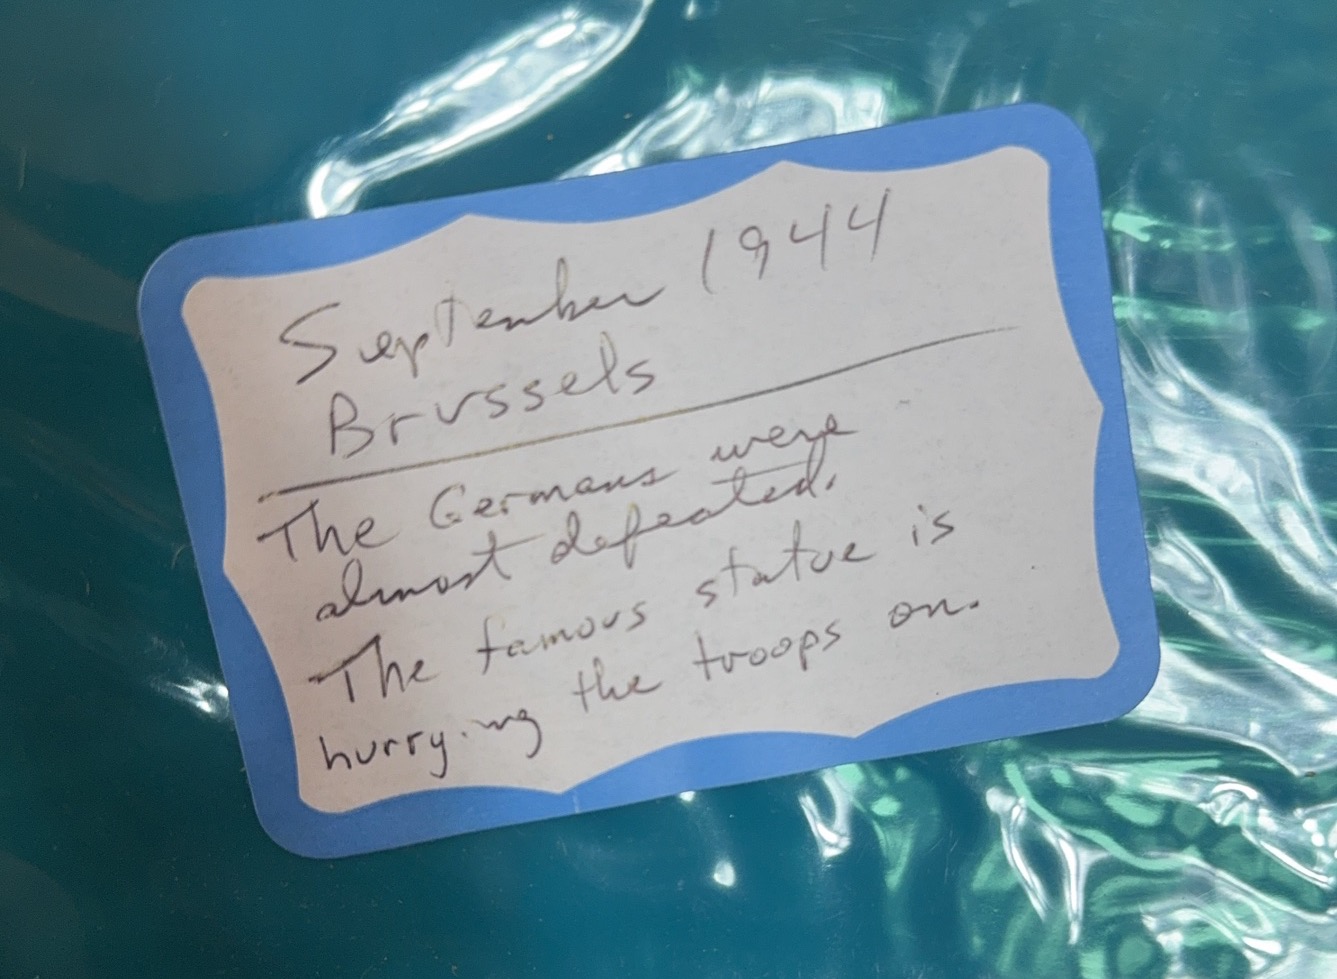 September 1944
Brussels
The Germans were
almost defeated.
The famous statue is
hurrying the troops on.